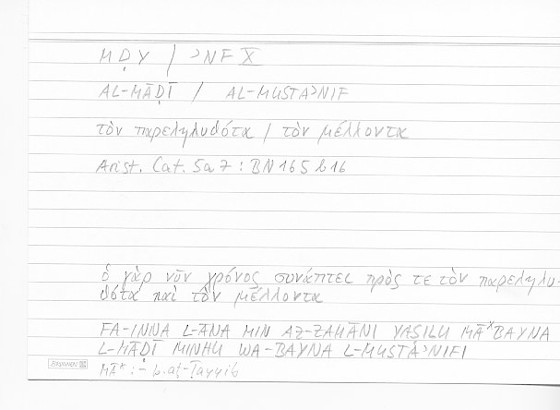 MḌY / ɔNF X
AL-MĀḌĪ / AL-MUSTAɔNIF
τὸν παρεληλυθότα / τὸν μέλλοντα
Arist. Cat. 5a7 : BN 165 b 16
ὁ γὰρ νῦν χρόνος συνάπτει πρός τε τὸν παρεληλυ-
θότα καὶ τὸν μέλλοντα
FA-INNA L-ĀNA MIN AZ-ZAMĀNI YAṢILU MĀ* BAYNA
L-MĀḌĪ MINHU WA-BAYNA L-MUSTAɔNIFI
MĀ* : – b. aṭ-Ṭayyib